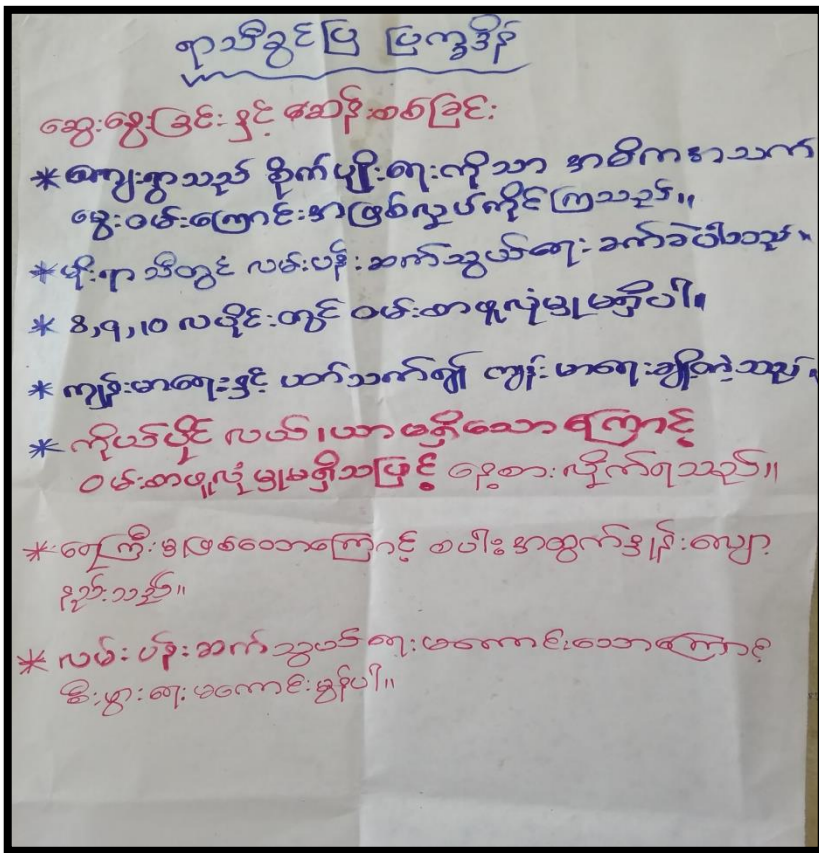 ရာသီခွင်ပြ ပြက္ခဒိန်
ဆွေးနွေးခြင်း နှင့် ဆန်းစစ်ခြင်း
* ကျေးရွာသည် စိုက်ပျိုးရေးကိုသာ အဓိကအသက်
မွေးဝမ်းကြောင်းအဖြစ်လုပ်ကိုင်ကြသည်။
* မိုးရာသီတွင် လမ်းပန်းဆက်သွယ်ရေး ခက်ခဲပါသည်။
* 8,9,10 လပိုင်းတွင် ဝမ်းစာဖူလုံမှုမရှိပါ။
* ကျန်းမာရေးနှင့် ပတ်သက်၍ ကျန်းမာရေးချို့တဲ့သည်။
* ကိုယ်ပိုင် လယ်ယာမရှိသောကြောင့်
ဝမ်းစာဖူလုံမှုမရှိသဖြင့် နေ့စားလိုက်ရသည်။
* ရေကြီးမှုဖြစ်သောကြောင့် စပါးအထွက်နှုန်းလျော့
နည်းသည်။
* လမ်းပန်းဆက်သွယ်ရေးမကောင်းသောကြောင့်
စီးပွားရေးမကောင်းမွန်ပါ။